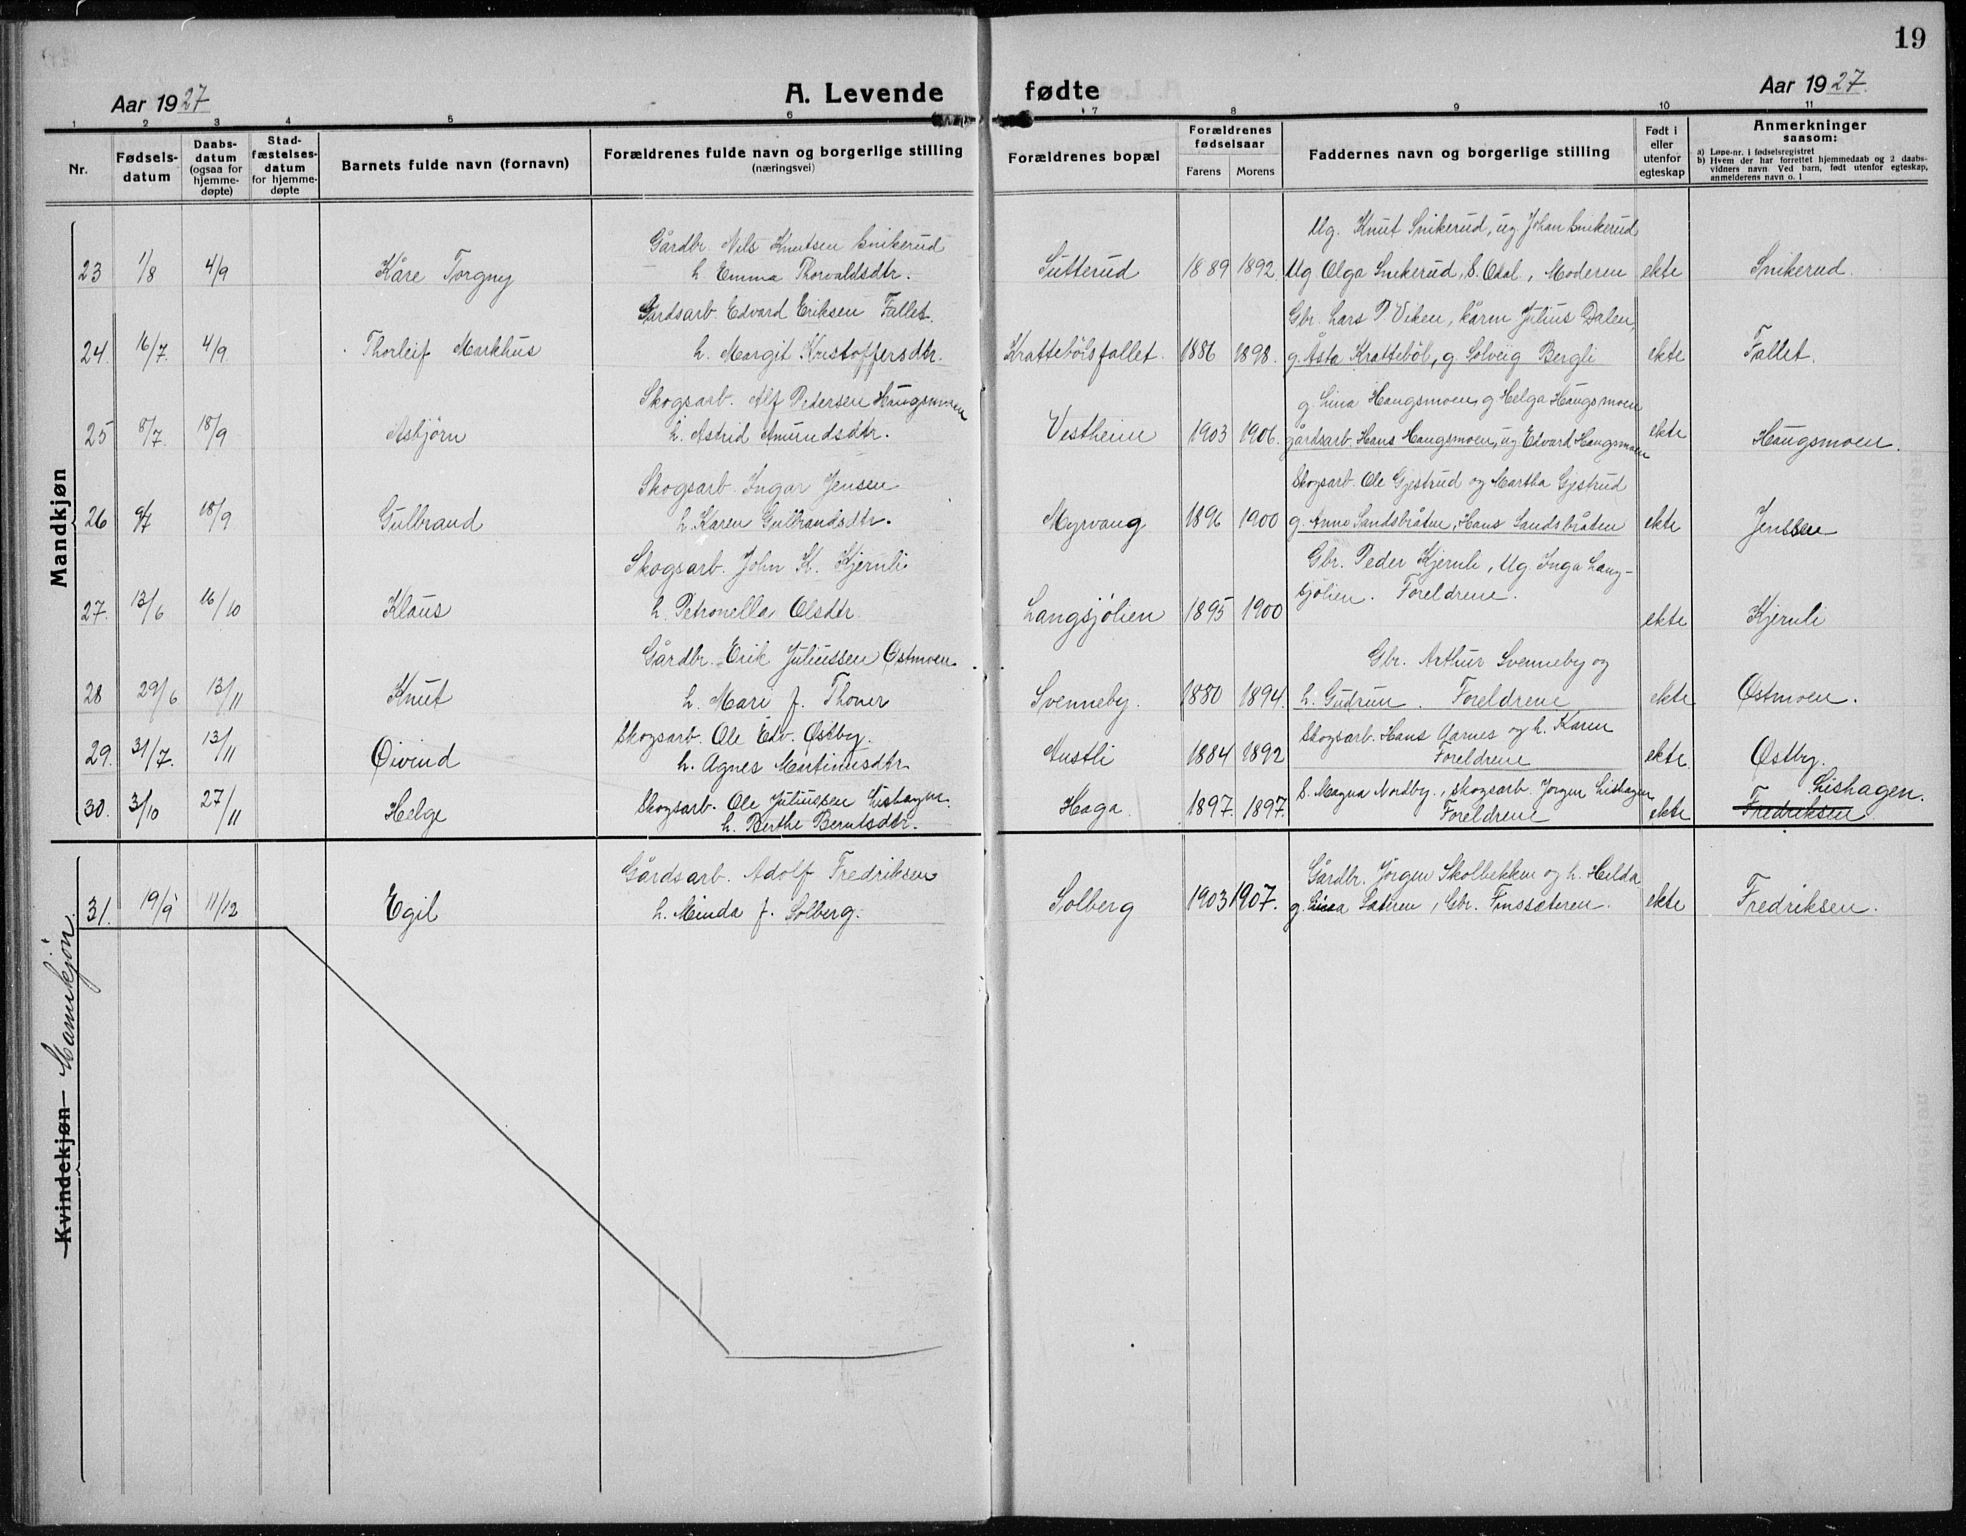 19
Aar 1927
A. Levende fødte
Aar 1927.
1 2 3 4 5 6 7 8 9 10 11
Nr.
Fødsels-
datum
Daabs-
datum
(ogsaa for
hjemme-
døpte)
Stad-
fæstelses-
datum
for hjemme-
døpte
Barnets fulde navn (fornavn)
Forældrenes fulde navn og borgerlige stilling
(næringsvei)
Forældrenes bopæl
Forældrenes
fødselsaar
Farens Morens
Faddernes navn og borgerlige stilling
Født i
eller
utenfor
egteskap
Anmerkninger
saasom:
a) Løpe-nr. i fødselsregistret
b) Hvem der har forrettet hjemmedaab og 2 daabs-
vidners navn. Ved barn, født utenfor egteskap,
anmelderens navn o. l
Mandkjøn
Gårdbr. Nils Knutsen Snikerud Ug. Knut Snikerud, ug Johan Snikerud
23 1/8 4/9 Kåre Torgny h. Emma Thorvaldsdtr. Sutterud 1889 1892 Ug Olga Snikerud, S. Odal, Moderen ekte Snikerud.
Gårdsarb. Edvard Eriksen Fallet. Gbr. Lars P. Viken, Julius Dalen,
24. 16/7. 4/9 Thorleif Markhus h. Margit Kristoffersdtr. Krattebölsfallet. 1886 1898. g. Åsta Kratteböl, g. Solveig Bergli ekte Fallet.
Skogsarb. Alf Pedersen Haugsmoen g. Lina Haugsmoen, g Helga Haugsmoen
25 8/7. 18/9 Asbjörn h. Astrid Amundsdtr. Vestheim 1903 1906. gårdsarb. Hans Haugsmoen, ug Edvard Haugsmoen ekte Haugsmoen.
Skogsarb. Ingar Jensen Skogsarb. Ole Gjestrud og Martha Gjestrud
26 9/7 18/9 Gulbrand h. Karen Gulbrandsdtr. Myrvang 1896 1900 g. Anna Sandsbråten, Hans Sandsbråten ekte Jenssen
Skogsarb. John K. Kjernli Gbr. Peder Kjernli, Ug. Inga Lang-
27. 13/6 16/10 Klaus h. Petronella Olsdtr. Langsjölien 1895 1900 sjölien. Foreldrene. ekte Kjernli
Gårdbr. Erik Juliussen Östmoen. Gbr. Arthur Svenneby og
28 29/6 13/11 Knut h. Mari f. Thoner Svenneby. 1880 1894. h. Gudrun. Foreldrene ekte Östmoen.
Skogsarb. Ole Edv. Östby. Skogsarb. Hans Aarnes og h. Karen
29. 31/7. 13/11 Öivind h. Agnes Martinusdtr. Austli 1884 1892 Foreldrene ekte. Östby.
Skogsarb. Ole Juliussen Lishagen. S. Magna Nordby, skogsarb. Jörgen Lishagen Lishagen.
30. 3/10 27/11 Helge h. Berthe Berntsdtr. Haga. 1897. 1897. Foreldrene ekte Fredriksen
Kvindekjøn Mannkjön.
Gårdsarb. Adolf Fredriksen Gårdbr. Jörgen Skolbekken og h. Hilda
31. 19/9 11/12 Egil h. Minda f. Solberg. Solberg 1903 1907. g. Lina Sæteren, Gbr. Finssæteren. ekte Fredriksen.